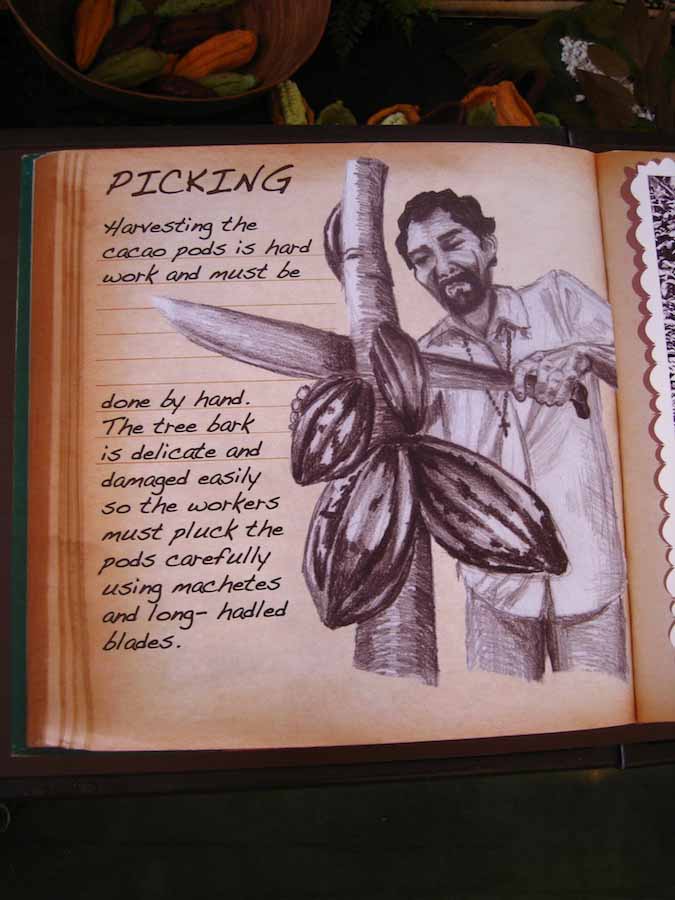 PICKING
Harvesting the
cacao pods is hard
work and must be
done by hand.
The tree bark
is delicate and
damaged easily
so the workers
must pluck the
pods carefully
using machetes
and long- hadled
blades.